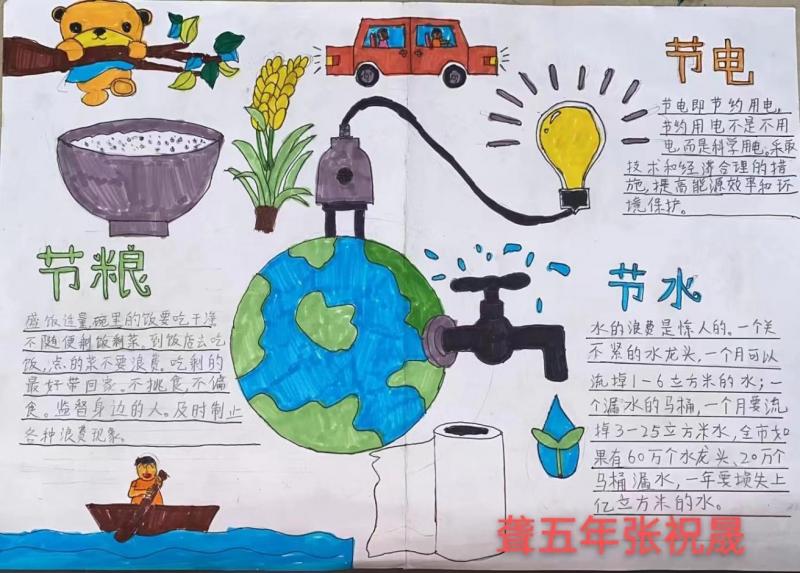 节电
节电即节约用电,
节约用电不是不用
电,而是科学用电,采取
技术和经济合理的措
施,提高能源效率和环
境保护。
节粮
盛饭适量,碗里的饭要吃干净
不随便剩饭剩菜。到饭店去吃
饭,点的菜不要浪费,吃剩的
最好带回家。不挑食,不偏
食。监督身边的人。及时制止
各种浪费现象。
节水
水的浪费是惊人的。一个关
不紧的水龙头,一个月可以
流掉1-6立方米的水;一
个漏水的马桶,一个月要流
掉3-25立方米水,全市如
果有60万个水龙头、20万个
马桶漏水,一年要损失上
亿立方米的水。
聋五年张祝晟